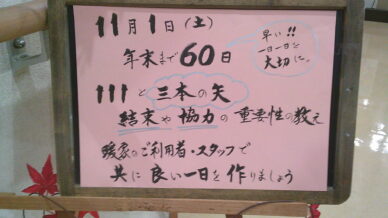 11月1日(土)
年末まで60日
早い!!
一日一日を
大切に。
111と三本の矢
結束や協力の重要性の教え
暖家のご利用者・スタッフで
共に良い一日を作りましょう